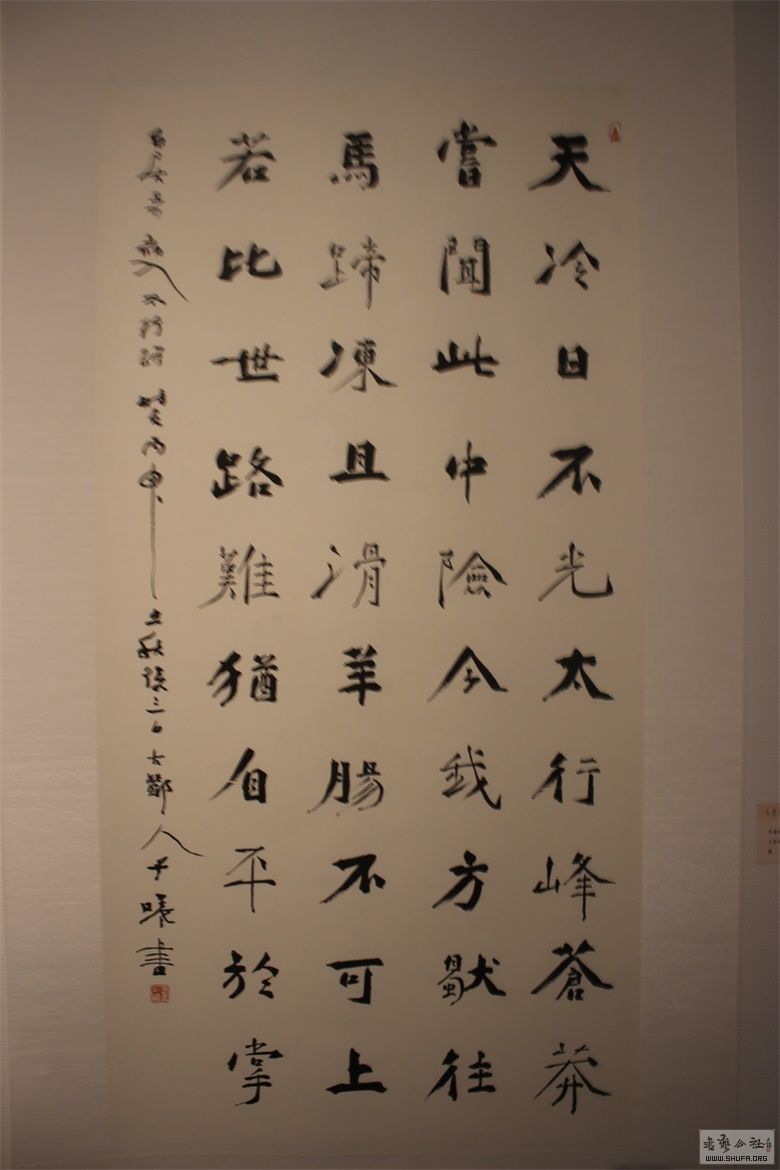 天冷日不光太行峰蒼莽
嘗聞此中險今我方獨往
馬蹄凍且滑羊腸不可上
若比世路難猶自平於掌
丙申立秋後三日古人曦書
书艺公社
WWW.SHUFA.ORG